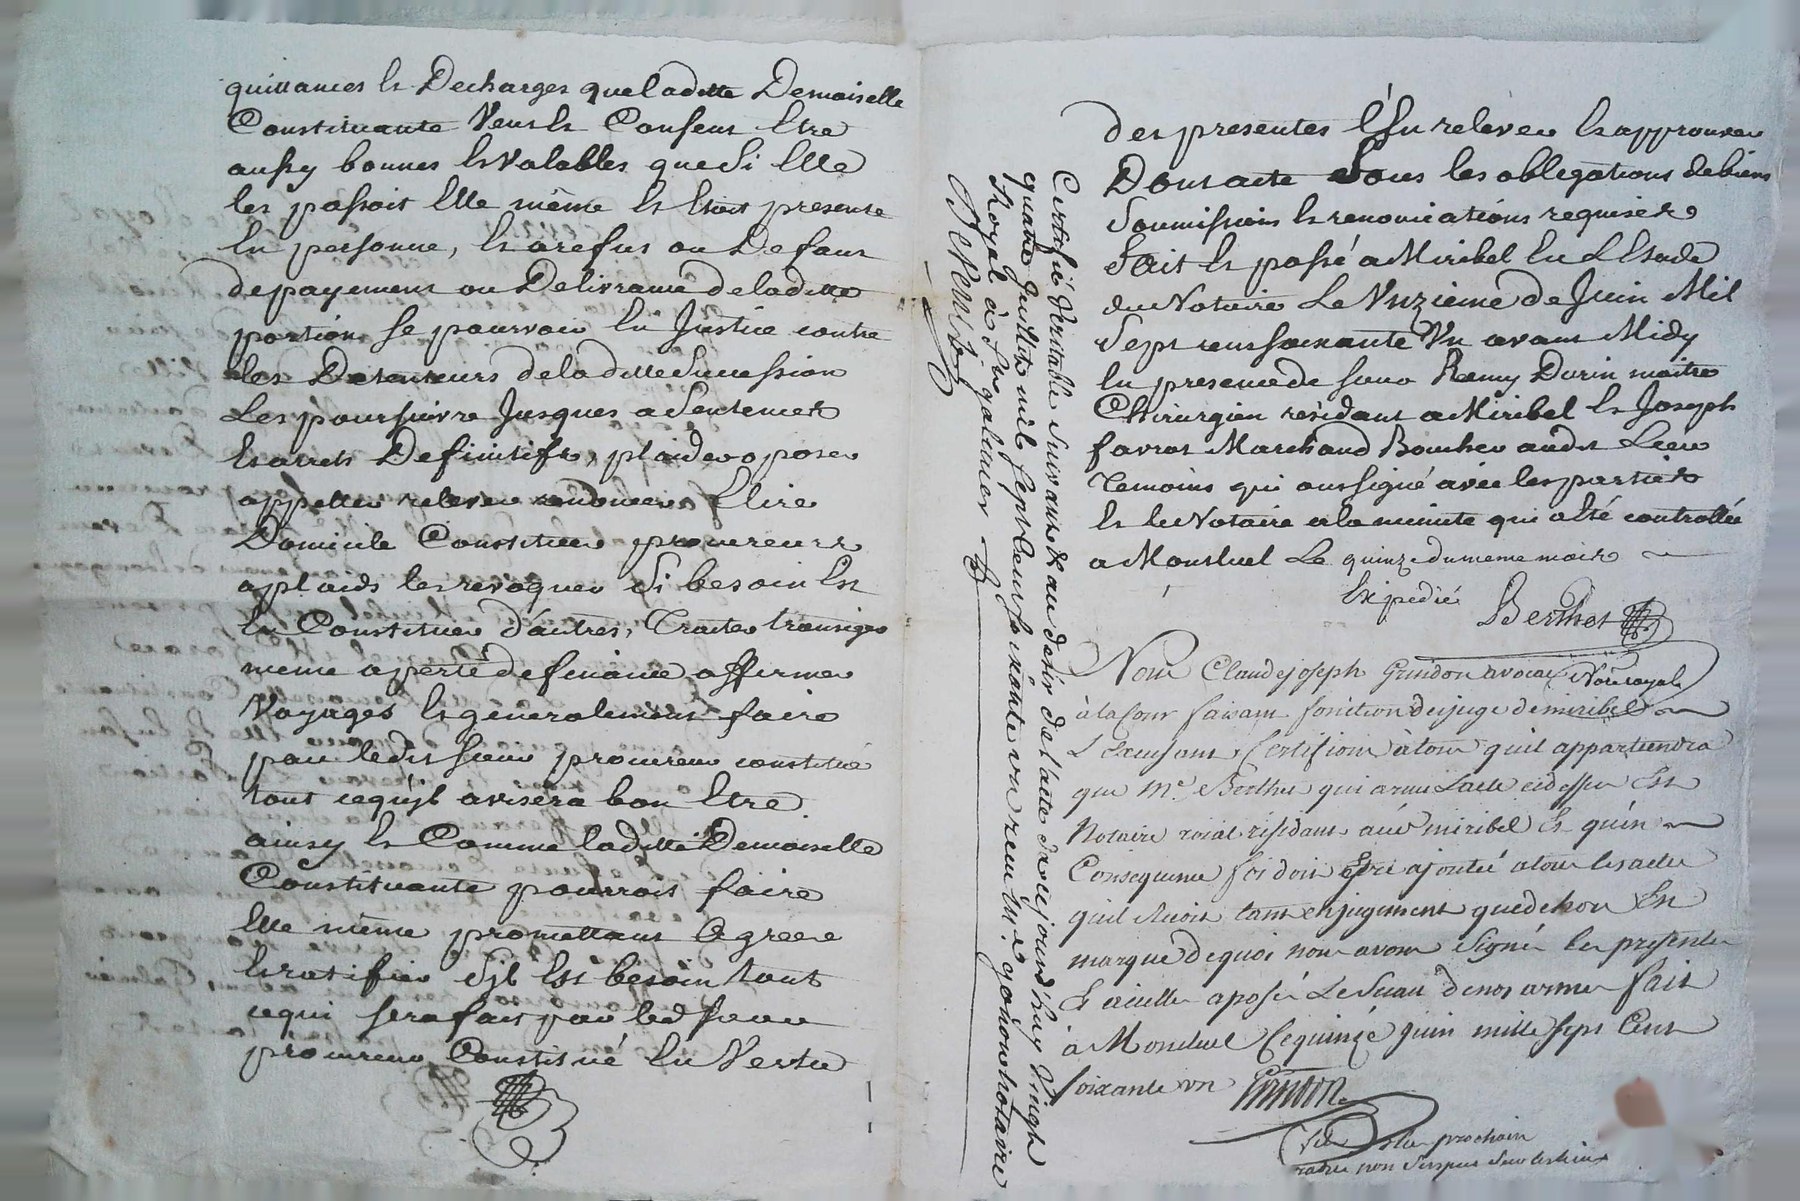 quittances Et Decharges que laditte Demoiselle
Constituante Veut Et Consent Etre
aussy bonnes Et Valables que Si Elle
les passoit Elle même Et Etoit presente
En personne, Et a refus ou Defaut
de payement ou Delivrance de laditte
portion Se pourvoir En Justice contre
les Detenteurs de laditte Succession
Les poursuivre Jusques a Sentences
Et arrets Definitifs, plaider oposer
appeller relever renoncer, Elire
Domicile Constituer procureurs
a plaids les revoquer Si besoin Est
En Constituer d'autres, Traiter transiger
meme a perte de finance affirmer
Voyages Et generalement faire
par ledit Sieur procureur constitué
tout ce qu'jl avisera bon Etre
ainsy Et Comme laditte Demoiselle
Constituante pourroit faire
Elle même promettant Agreer
Et ratifier S'jl Est besoin tout
ce qui Sera fait par led Sieur
procureur Constitué En Vertu
des presentes L'En relever Et approuver
Dont acte Sous les obligations de biens
Soumissions Et renonciations requises
Fait Et passé a Miribel En L'Etude
du Notaire Le Unzieme de Juin Mil
Sept cent soixante Un avant Midy
En presence de Sieur Remy Durin maitre
Chirurgien résidant a Miribel Et Joseph
favrot Marchand Boucher audit Lieu
Temoins qui ont signé avec les parties
Et le Notaire a la minute qui a Eté controllée
a Montluel Le quinze du meme mois
Expedié
Berthet
Nore royal
Nous Claude joseph Grindon avocat
à la Cour faisant fonction de juge de miribel
Certifions à tous qu'il appartiendra
que Me. Berthet qui a reçu L'acte cidessus Est
Notaire roïal résidant audt miribel Et qu'en
Consequence foi doit Etre ajoutée a tous les actes
qu'il reçoit tant en jugement que dehors En
marque de quoi nous avons Signé les presentes
Et a icelles aposé Le Sceau de nos armes fait
à Montluel Ce quinze juin mille Sept Cent
soixante un Grindon
Certifié Veritable Suivant & au desir de l'acte de ce jourd'huy Vingt
quatre Juillet mil sept Cent soixante un reçu Me. gonon notaire
Royal à St galmier